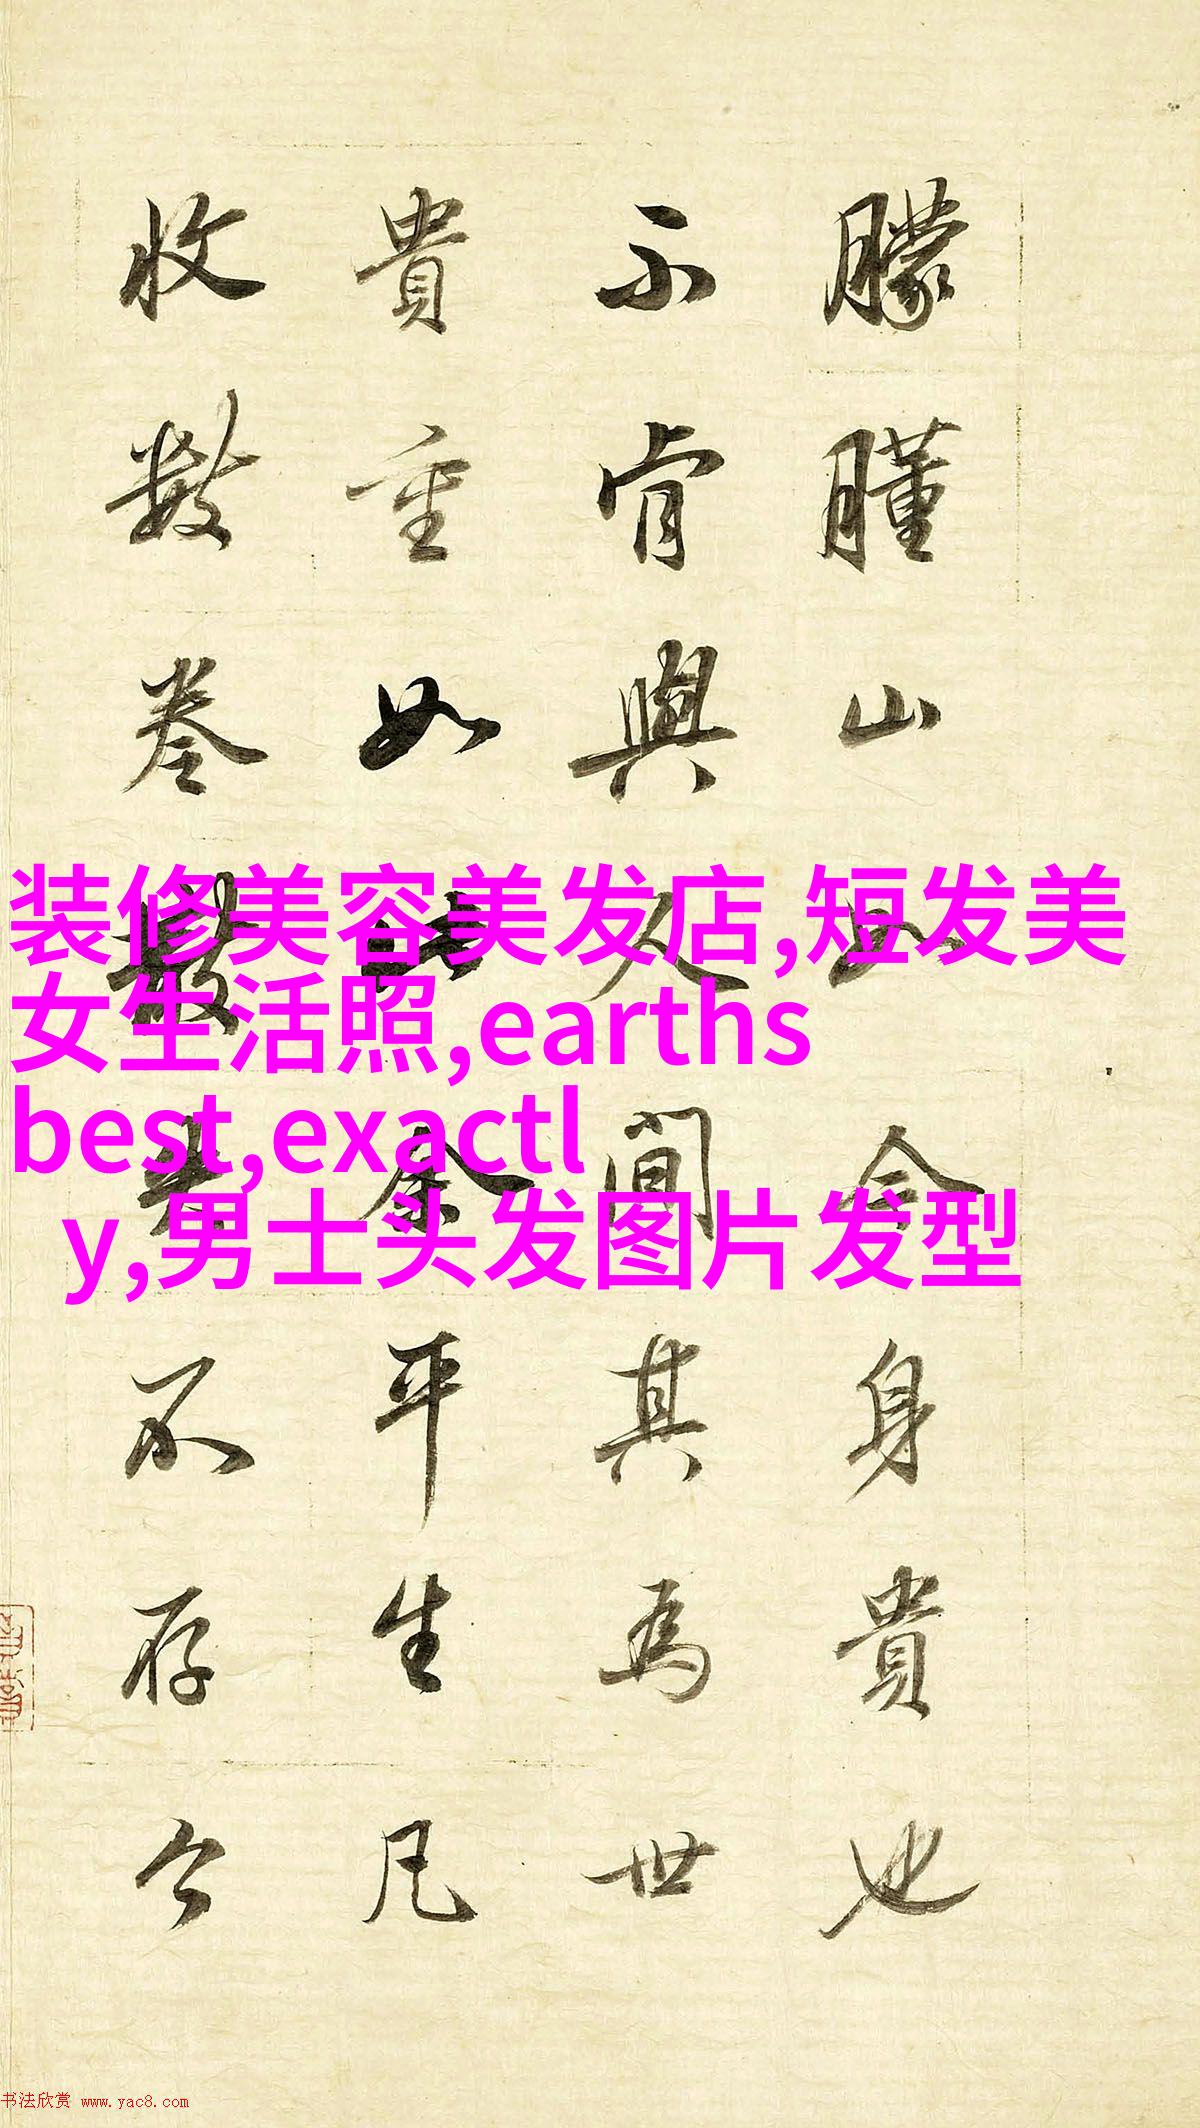 朦朣山身貴也
不肯與間其為世
貴重如余平生凡
收數卷不存今
装修美容美发店,短发美
女生活照,earths
best,exactl
y,男士头发图片发型
书法欣赏 www.yac8.com